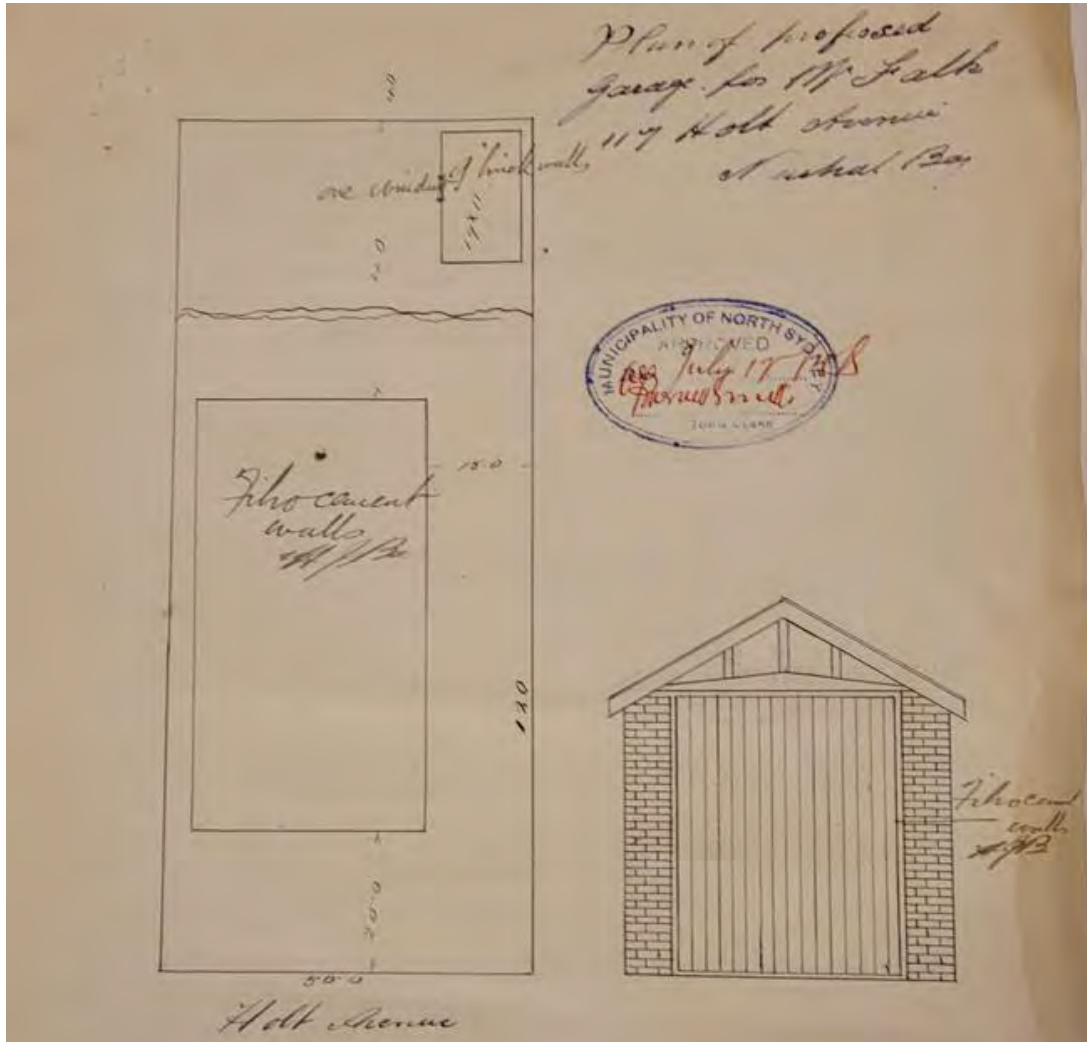 Plan of proposed
garage for Mr Falk
117 Holt Avenue
Neutral Bay
40
one window 9" brick walls
17 x 11
MUNICIPALITY OF NORTH SYDNEY
APPROVED
July 17
TOWN CLERK
Fibro cement
walls
15-0
120
Fibro cement
walls
20-0
50-0
Holt Avenue